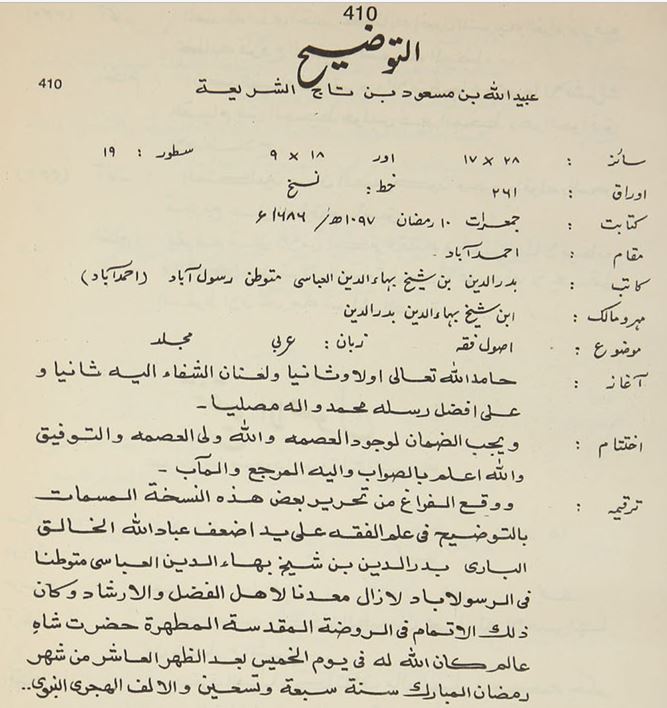 410
التوضیح
عبیدالله بن مسعود بن تاج الشریعة
410
سائز : ۲۸ × ۱۷ اور ۱۸ × ۹ سطور : ۱۹
اوراق : ۲۶۱ خط : نسخ
کتابت : جمعرات ۱۰ رمضان ۱۰۹۷ھ/ ۱۶۸۶ء
مقام : احمدآباد
کاتب : بدرالدین بن شیخ بہاءالدین العباسی متوطن رسول آباد (احمدآباد)
مہرومالک : ابن شیخ بہاءالدین بدرالدین
موضوع : اصول فقہ زبان : عربی مجلد
آغاز : حامدالله تعالی اولا وثانیا ولعنان الشفاء الیه ثانیا و
علی افضل رسله محمد واله مصلیا ـ
اختتام : ویجب الضمان لوجود العصمه والله ولی العصمه والتوفیق
والله اعلم بالصواب والیه المرجع والمآب ـ
ترقیمہ : ووقع الفراغ من تحریر بعض هذه النسخة المسمات
بالتوضیح فی علم الفقه علی ید اضعف عبادالله الخالق
الباری بدرالدین بن شیخ بهاءالدین العباسی متوطنا
فی الرسولاباد لازال معدنا لاهل الفضل والارشاد وکان
ذلك الاتمام فی الروضة المقدسة المطهرة حضرت شاه
عالم کان الله له فی یوم الخمیس بعد الظهر العاشر من شهر
رمضان المبارك سنة سبعة وتسعین والالف الهجری النبوی..